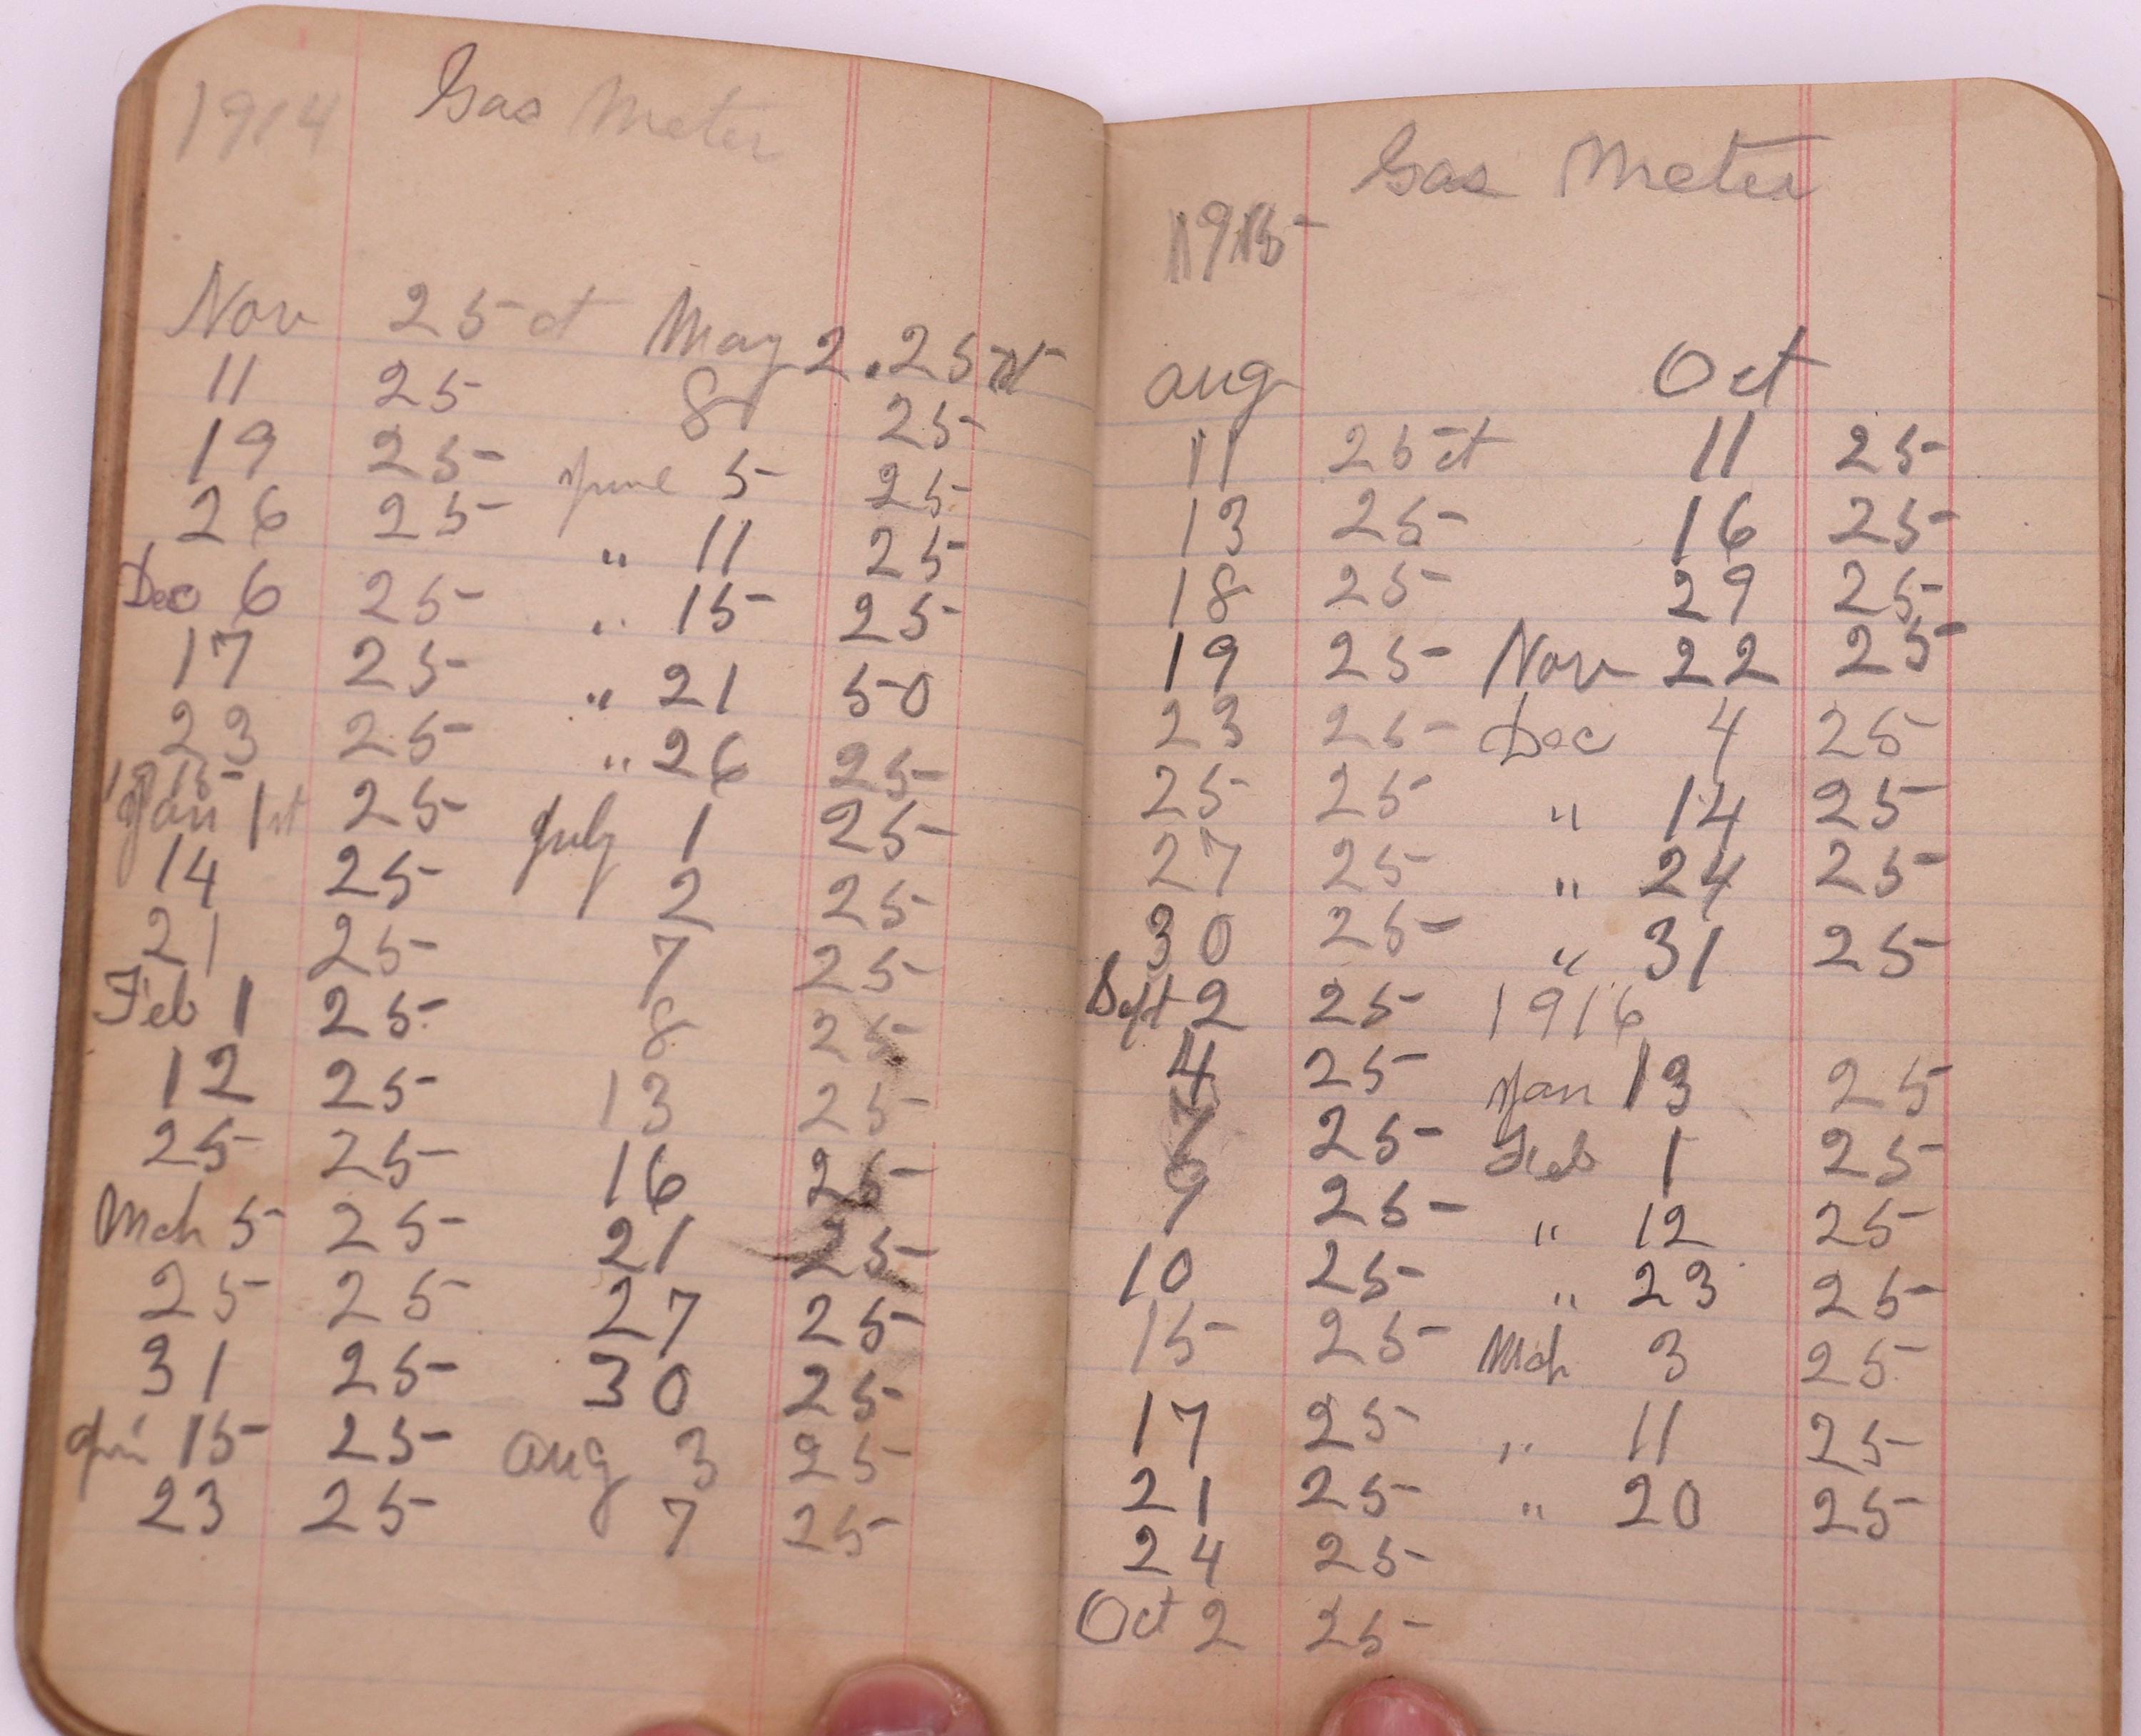 1914 Gas Meter
Nov 25 ct May 2. 25 ct
11 25 8 25
19 25 June 5 25
26 25 " 11 25
Dec 6 25 " 15 25
17 25 " 21 50
23 25 " 26 25
1915
Jan 1st 25 July 1 25
14 25 2 25
21 25 7 25
Feb 1 25 8 25
12 25 13 25
25 25 16 25
Mch 5 25 21 25
25 25 27 25
31 25 30 25
15 25 Aug 3 25
23 25 7 25
Gas Meter
1915
Aug Oct
11 25 ct 11 25
13 25 16 25
18 25 29 25
19 25 Nov 22 25
23 25 Dec 4 25
25 25 " 14 25
27 25 " 24 25
30 25 " 31 25
Sept 2 25 1916
4 25 Jan 13 25
7 25 Feb 1 25
9 25 " 12 25
10 25 " 23 25
15 25 Mch 3 25
17 25 " 11 25
21 25 " 20 25
24 25
Oct 2 25